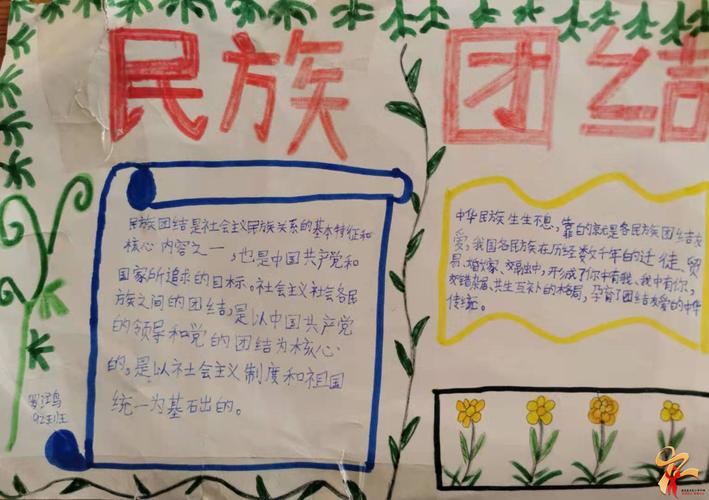 民族团结
民族团结是社会主义民族关系的基本特征和
核心内容之一,也是中国共产党和
国家所追求的目标。社会主义社会各民
族之间的团结,是以中国共产党
的领导和党的团结为核心
的,是以社会主义制度和祖国
统一为基石出的。
中华民族生生不息,靠的就是各民族团结友
爱,我国各民族在历经数千年的迁徒、贸
易、婚嫁、交融中,形成了你中有我、我中有你,
交错杂居、共生互补的格局,孕育了团结友爱的中华
传统。